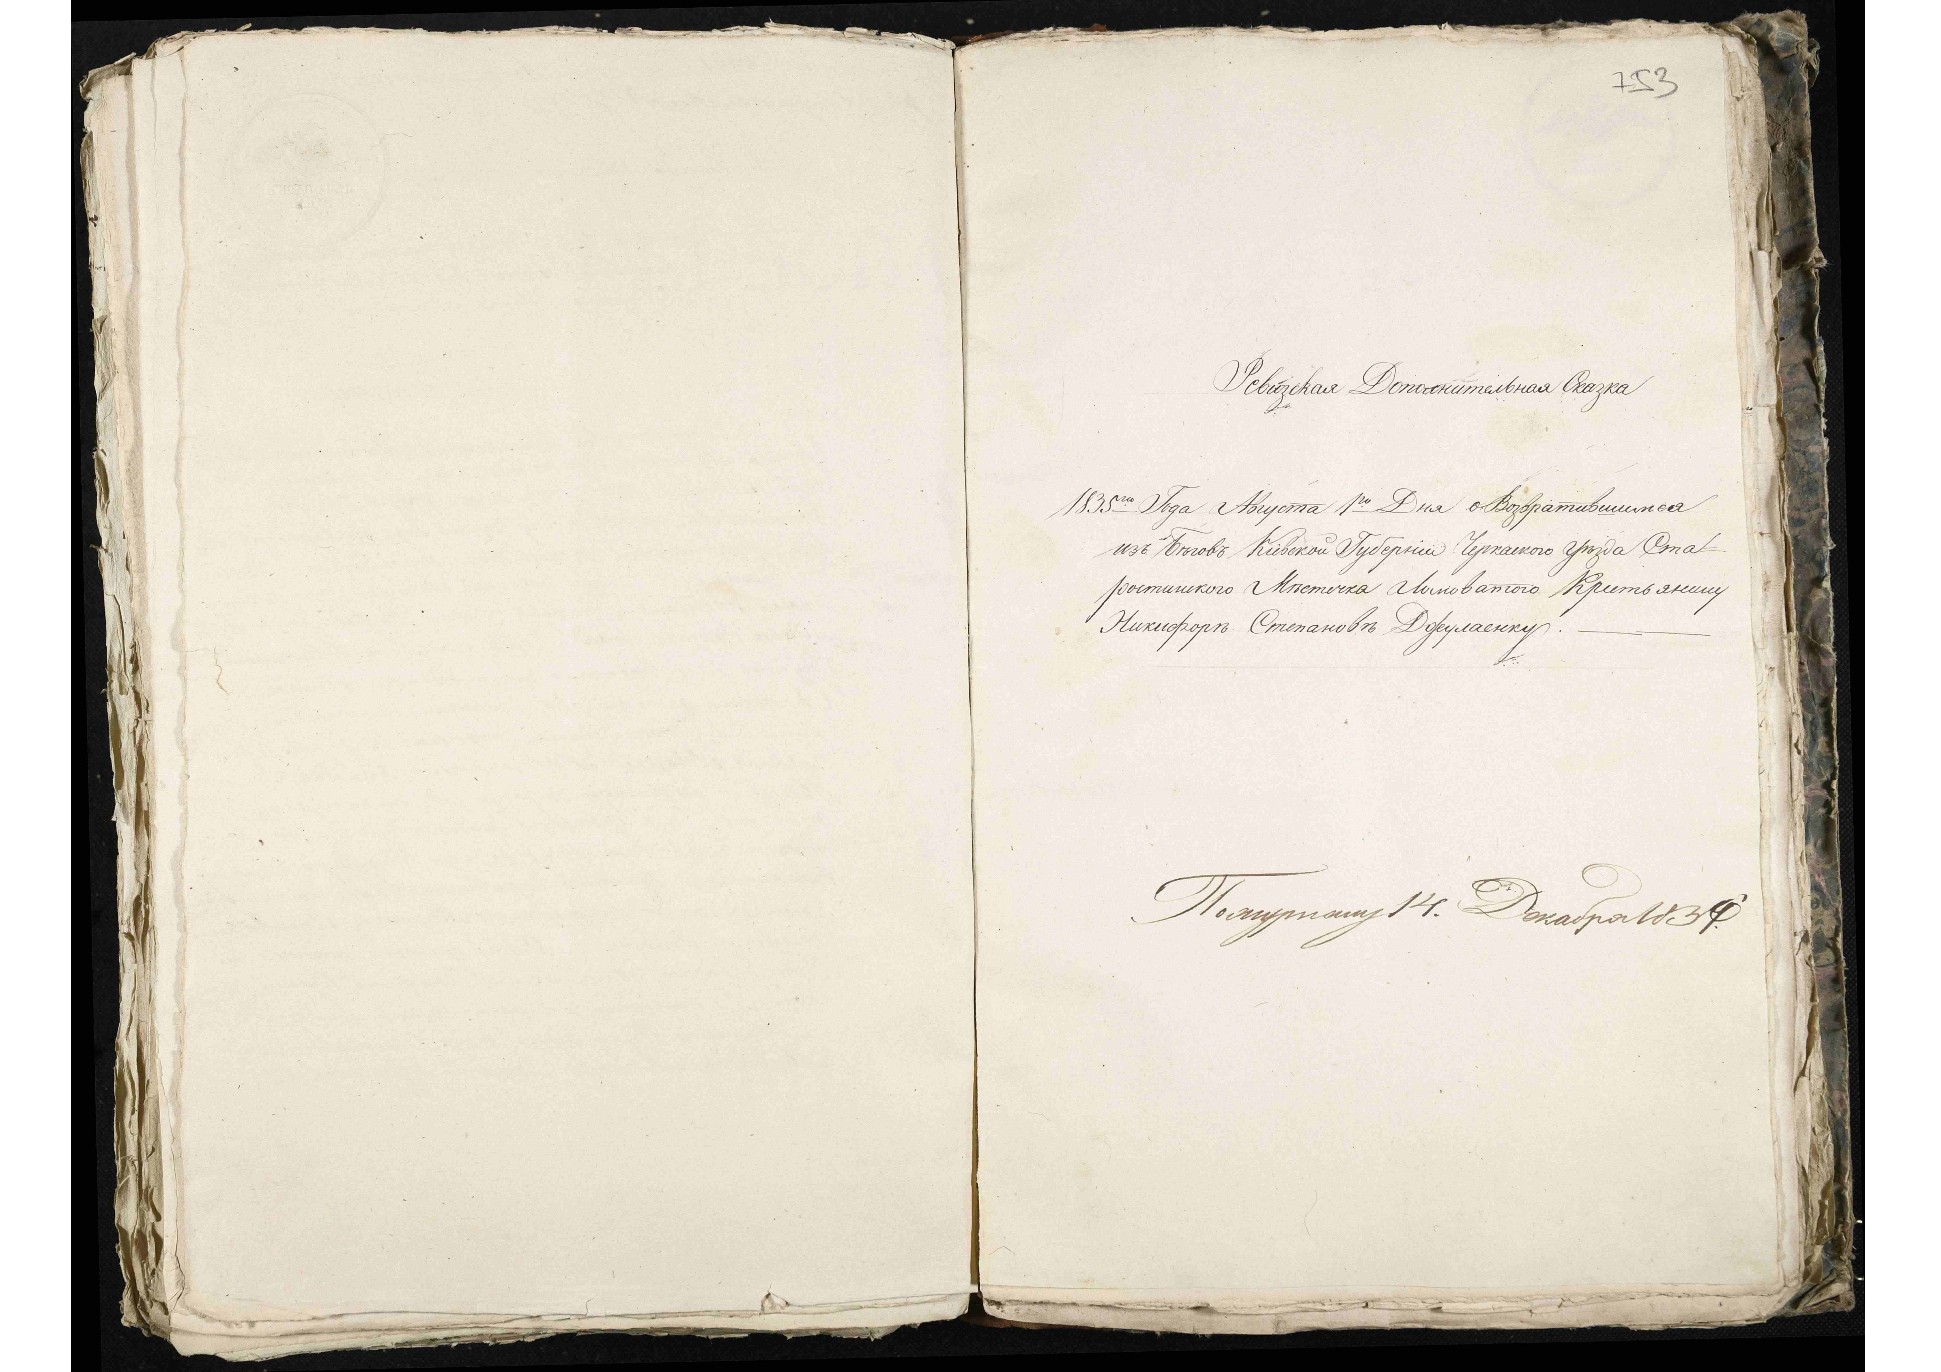 753
Ревизская Дополнительная Сказка
1835го Года Августа 1го Дня о Возвратившимся
изъ Бѣговъ Кіевской Губерніи Черкаского уѣзда Ста-
ростинского Мѣстечка Ломоватого Крестьянину
Никифорѣ Степановѣ Джулаенку.
14. Декабря 183